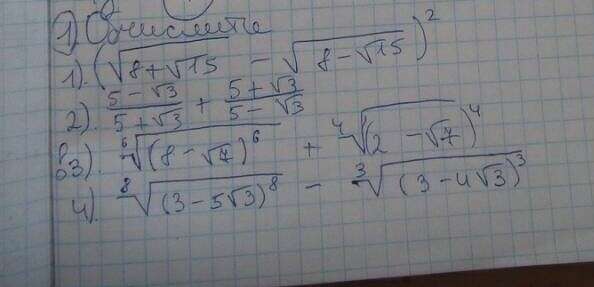 1) Вычислить
1). (√(8+√15) - √(8-√15))²
2). (5-√3)/(5+√3) + (5+√3)/(5-√3)
3). ⁶√((8-√7)⁶) + ⁴√((2-√7)⁴)
4). ⁸√((3-5√3)⁸) - ³√((3-4√3)³)